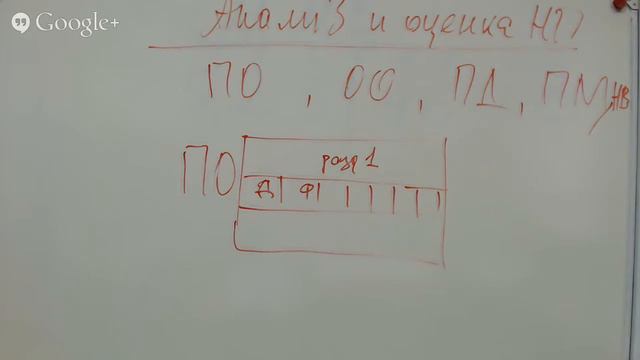 Google+
Анализ и оценка НПД
ПО, ОО, ПД, ПМ, НВ
ПО
разр 1
Д Ф